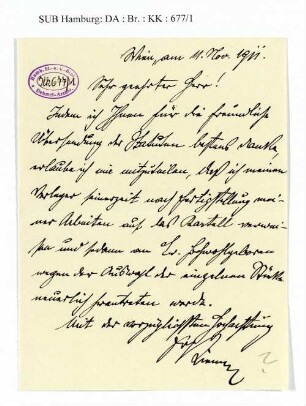 SUB Hamburg: DA : Br. : KK : 677/1
Wien, am 11. Nov. 1911.
Sehr geehrter Herr!
Indem ich Ihnen für die freundliche
Übersendung der Statuten bestens danke,
erlaube ich mir mitzuteilen, daß ich meinen
Verleger seinerzeit nach Fertigstellung mei-
ner Arbeiten auf das Kartell verwei-
sen und sodann an Ew. Hochwohlgeboren
wegen der Auswahl der einzelnen Stücke
neuerlich herantreten werde.
Mit der vorzüglichsten Hochachtung